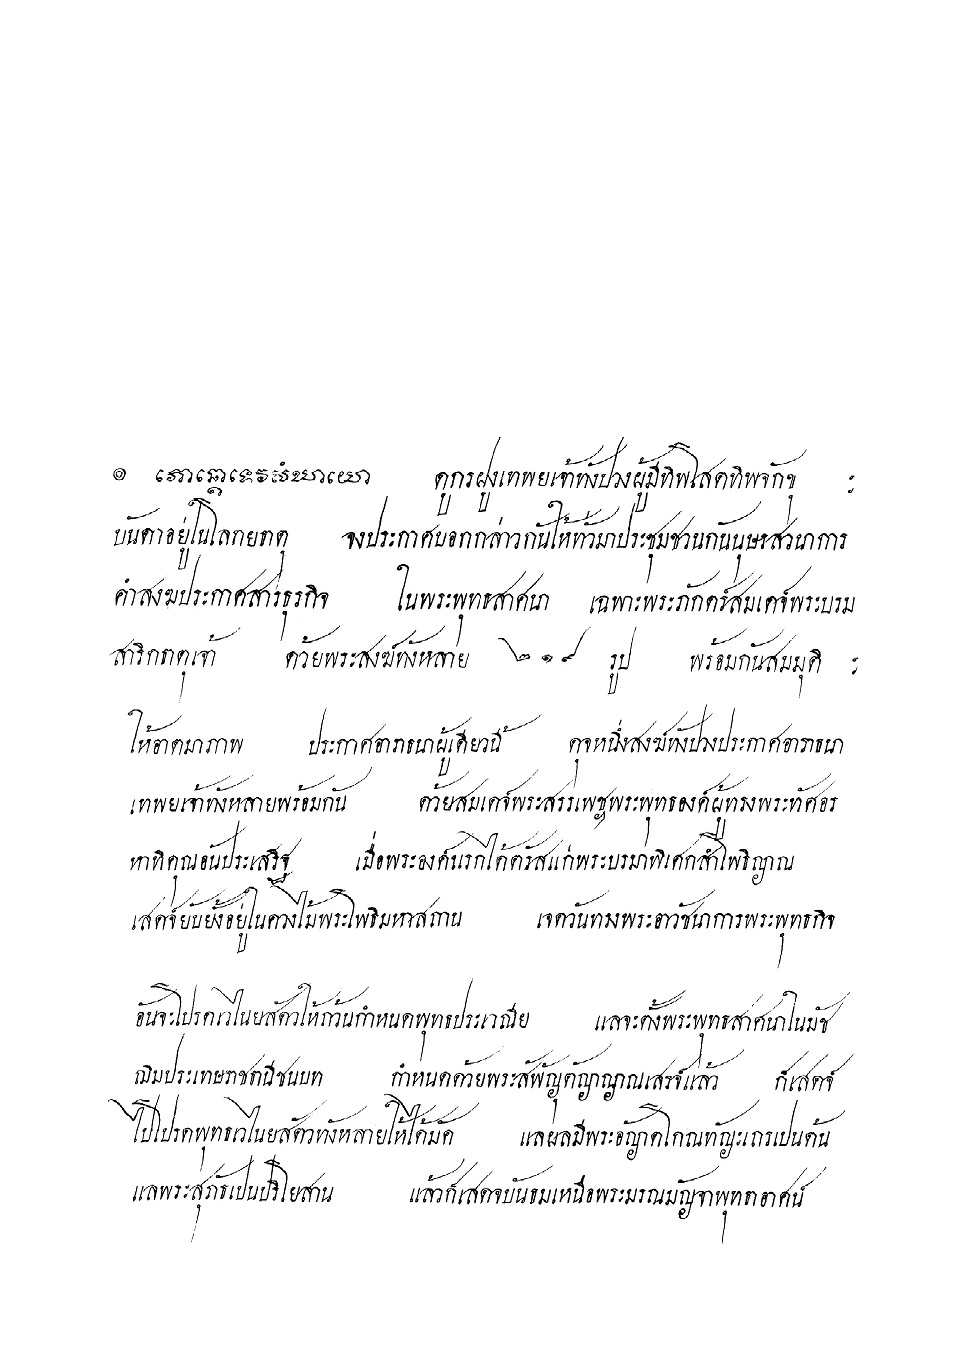 ๏ ดูกรฝูงเทพยเจ้าทังปวงผู้มีทิพโสตทิพจักขุ ะ
บันดาอยู่ในโลกยธาตุ จงประกาศบอกกล่าวกันให้ทั่วมาประชุมชวนกันนุษรสวนาการ
คำสงฆประกาศสารธุรกิจ ในพระพุทธสาศนา เฉพาะพระภักตร์สมเดจ์พระบรม
สาริกธาตุเจ้า ด้วยพระสงฆ์ทังหลาย ๒๑๙ รูป พร้อมกันสมมุติ ะ
ให้อาตมาภาพ ประกาศอาราธนาผู้เดียวนี้ ดุจหนึ่งสงฆ์ทังปวงประกาศอาราธนา
เทพยเจ้าทังหลายพร้อมกัน ด้วยสมเดจ์พระสรรเพชพระพุทธองค์ผู้ทรงพระทัศอร
หาทิคุณอันประเสริฐ เมื่อพระองค์แรกได้ตรัสแก่พระบรมาพิเศกสัมโพธิญาณ
เสดจ์ยับยั้งอยู่ในควงไม้พระโพธิมหาสถาน เจดวันทรงพระอาวัชนาการพระพุทธกิจ
อันจะโปรดเวไนยสัตวให้ถ้วนกำหนดพุทธประเวณีย แลจะตั้งพระพุทธสาศนาในมัช
ฌิมประเทษราชธนีชนบท กำหนดด้วยพระสัพัญุตัญาญาณเสรจ์แล้ว ก็เสดจ์
ไปโปรดพุทธเวไนยสัตวทังหลายให้ได้มัค แลผลมีพระอัญาโกณทัญะเถรเป็นต้น
แลพระสุภัธเป็นปริโยสาน แล้วก็เสดจบันธมเหนือพระมรณมัญจาพุทธอาศน์